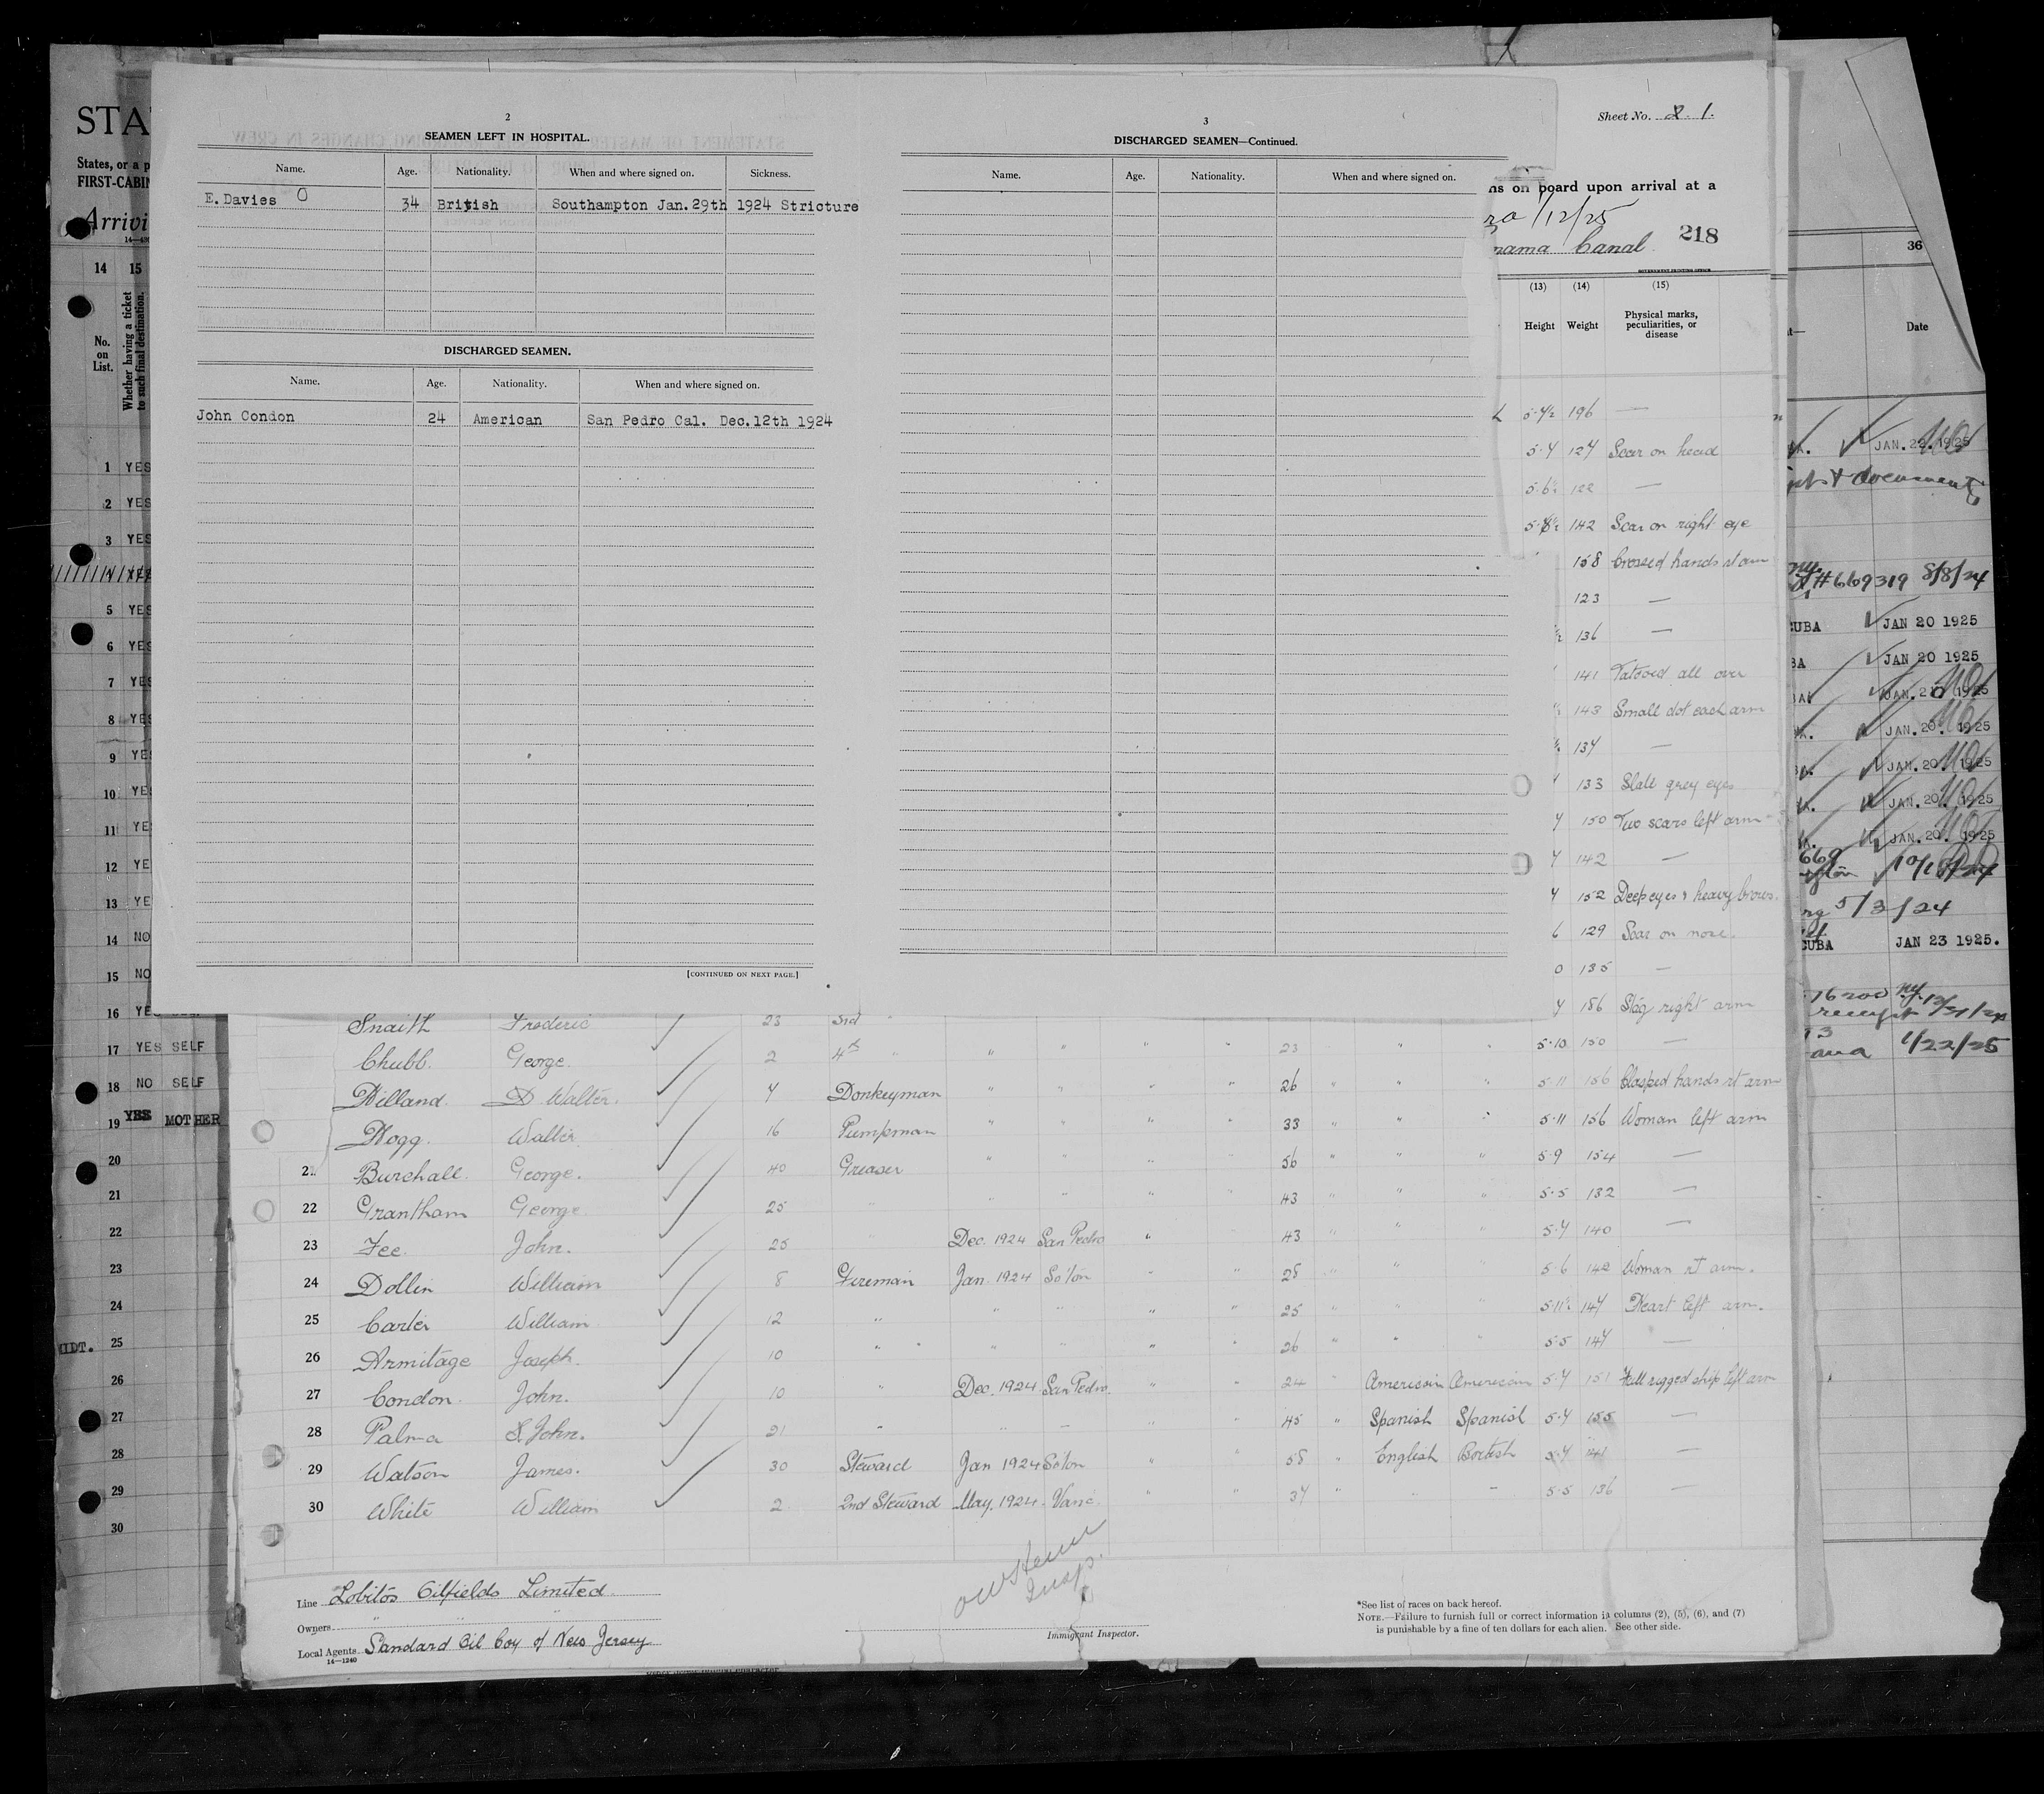 2
SEAMEN LEFT IN HOSPITAL.
Name. Age. Nationality. When and where signed on. Sickness.
E. Davies O 34 British Southampton Jan. 29th 1924 Stricture
DISCHARGED SEAMEN.
Name. Age. Nationality. When and where signed on.
John Condon 24 American San Pedro Cal. Dec. 12th 1924
[CONTINUED ON NEXT PAGE.]
3
DISCHARGED SEAMEN—Continued.
Name. Age. Nationality. When and where signed on.
Sheet No. 1.
ns on board upon arrival at a
1/12/25
nama Canal 218
GOVERNMENT PRINTING OFFICE
(13) (14) (15)
Height Weight Physical marks, peculiarities, or disease
5·4½ 196 —
5·4 127 Scar on head
5·6½ 122 —
142 Scar on right eye
158 Crossed hands rt arm
123 —
136 —
141 Tatooed all over
143 Small dot each arm
134 —
133 Slate grey eyes
150 Two scars left arm
142 —
152 Deep eyes & heavy brows.
6 129 Scar on nose.
0 135 —
186 Stag right arm
Snaith Frederic 23 3rd "
Chubb. George. 2 4th " " " " " 23 " " 5·10 150 —
Hilland. Walter. 4 Donkeyman " " " " 26 " " " 5·11 156 Clasped hands rt arm
Hogg. Walter 16 Pumpman " " " " 33 " " " 5·11 156 Woman left arm
21 Burchall. George. 40 Greaser " " " " 56 " " " 5·9 154 —
22 Grantham George 25 " " " " " 43 " " " 5·5 132 —
23 Fee. John. 25 " Dec. 1924 San Pedro " " 43 " " " 5·7 140 —
24 Dollin William 8 Fireman Jan. 1924 So'ton " " 28 " " " 5·6 142 Woman rt arm.
25 Carter William 12 " " " " " 25 " " " 5·11½ 147 Heart left arm.
26 Armitage Joseph. 10 " " " " " " 26 " " " 5·5 147 —
27 Condon. John. 10 " Dec. 1924 San Pedro. " " 24 " American American 5·7 151 Full rigged ship left arm
28 Palma S. John. 21 " " " " " 45 " Spanish Spanish 5·7 155 —
29 Watson James. 30 Steward Jan 1924 So'ton " " 58 " English British 5·7 141 —
30 White William 2 2nd Steward May. 1924 Vanc. " " 37 " " " 5·5 136 —
Line Lobitos Oilfields Limited
Owners " " "
Local Agents Standard Oil Coy of New Jersey
14—1240
Insp.
Immigrant Inspector.
*See list of races on back hereof.
NOTE.—Failure to furnish full or correct information in columns (2), (5), (6), and (7)
is punishable by a fine of ten dollars for each alien. See other side.
STA
States, or a p
FIRST-CABIN
Arrivi
14 15
No. on List.
Whether having a ticket to such final destination.
1 YES
2 YES
3 YES
4 YES
5 YES
6 YES
7 YES
8 YES
9 YES
10 YES
11 YES
12 YE
13 YE
14 NO
15 NO
16 YES SELF
17 YES SELF
18 NO SELF
19 YES MOTHER
20
21
22
23
24
MIDT. 25
26
27
28
29
30
36
Date
JAN. 22. 1925
& documents
#669319 8/8/24
CUBA JAN 20 1925
BA JAN 20 1925
BA JAN. 20 1925
A. JAN. 20. 1925
JAN. 20. 1925
A. JAN. 20. 1925
A. JAN. 20. 1925
669
5/3/24
CUBA JAN 23 1925.
receipt
1/22/25